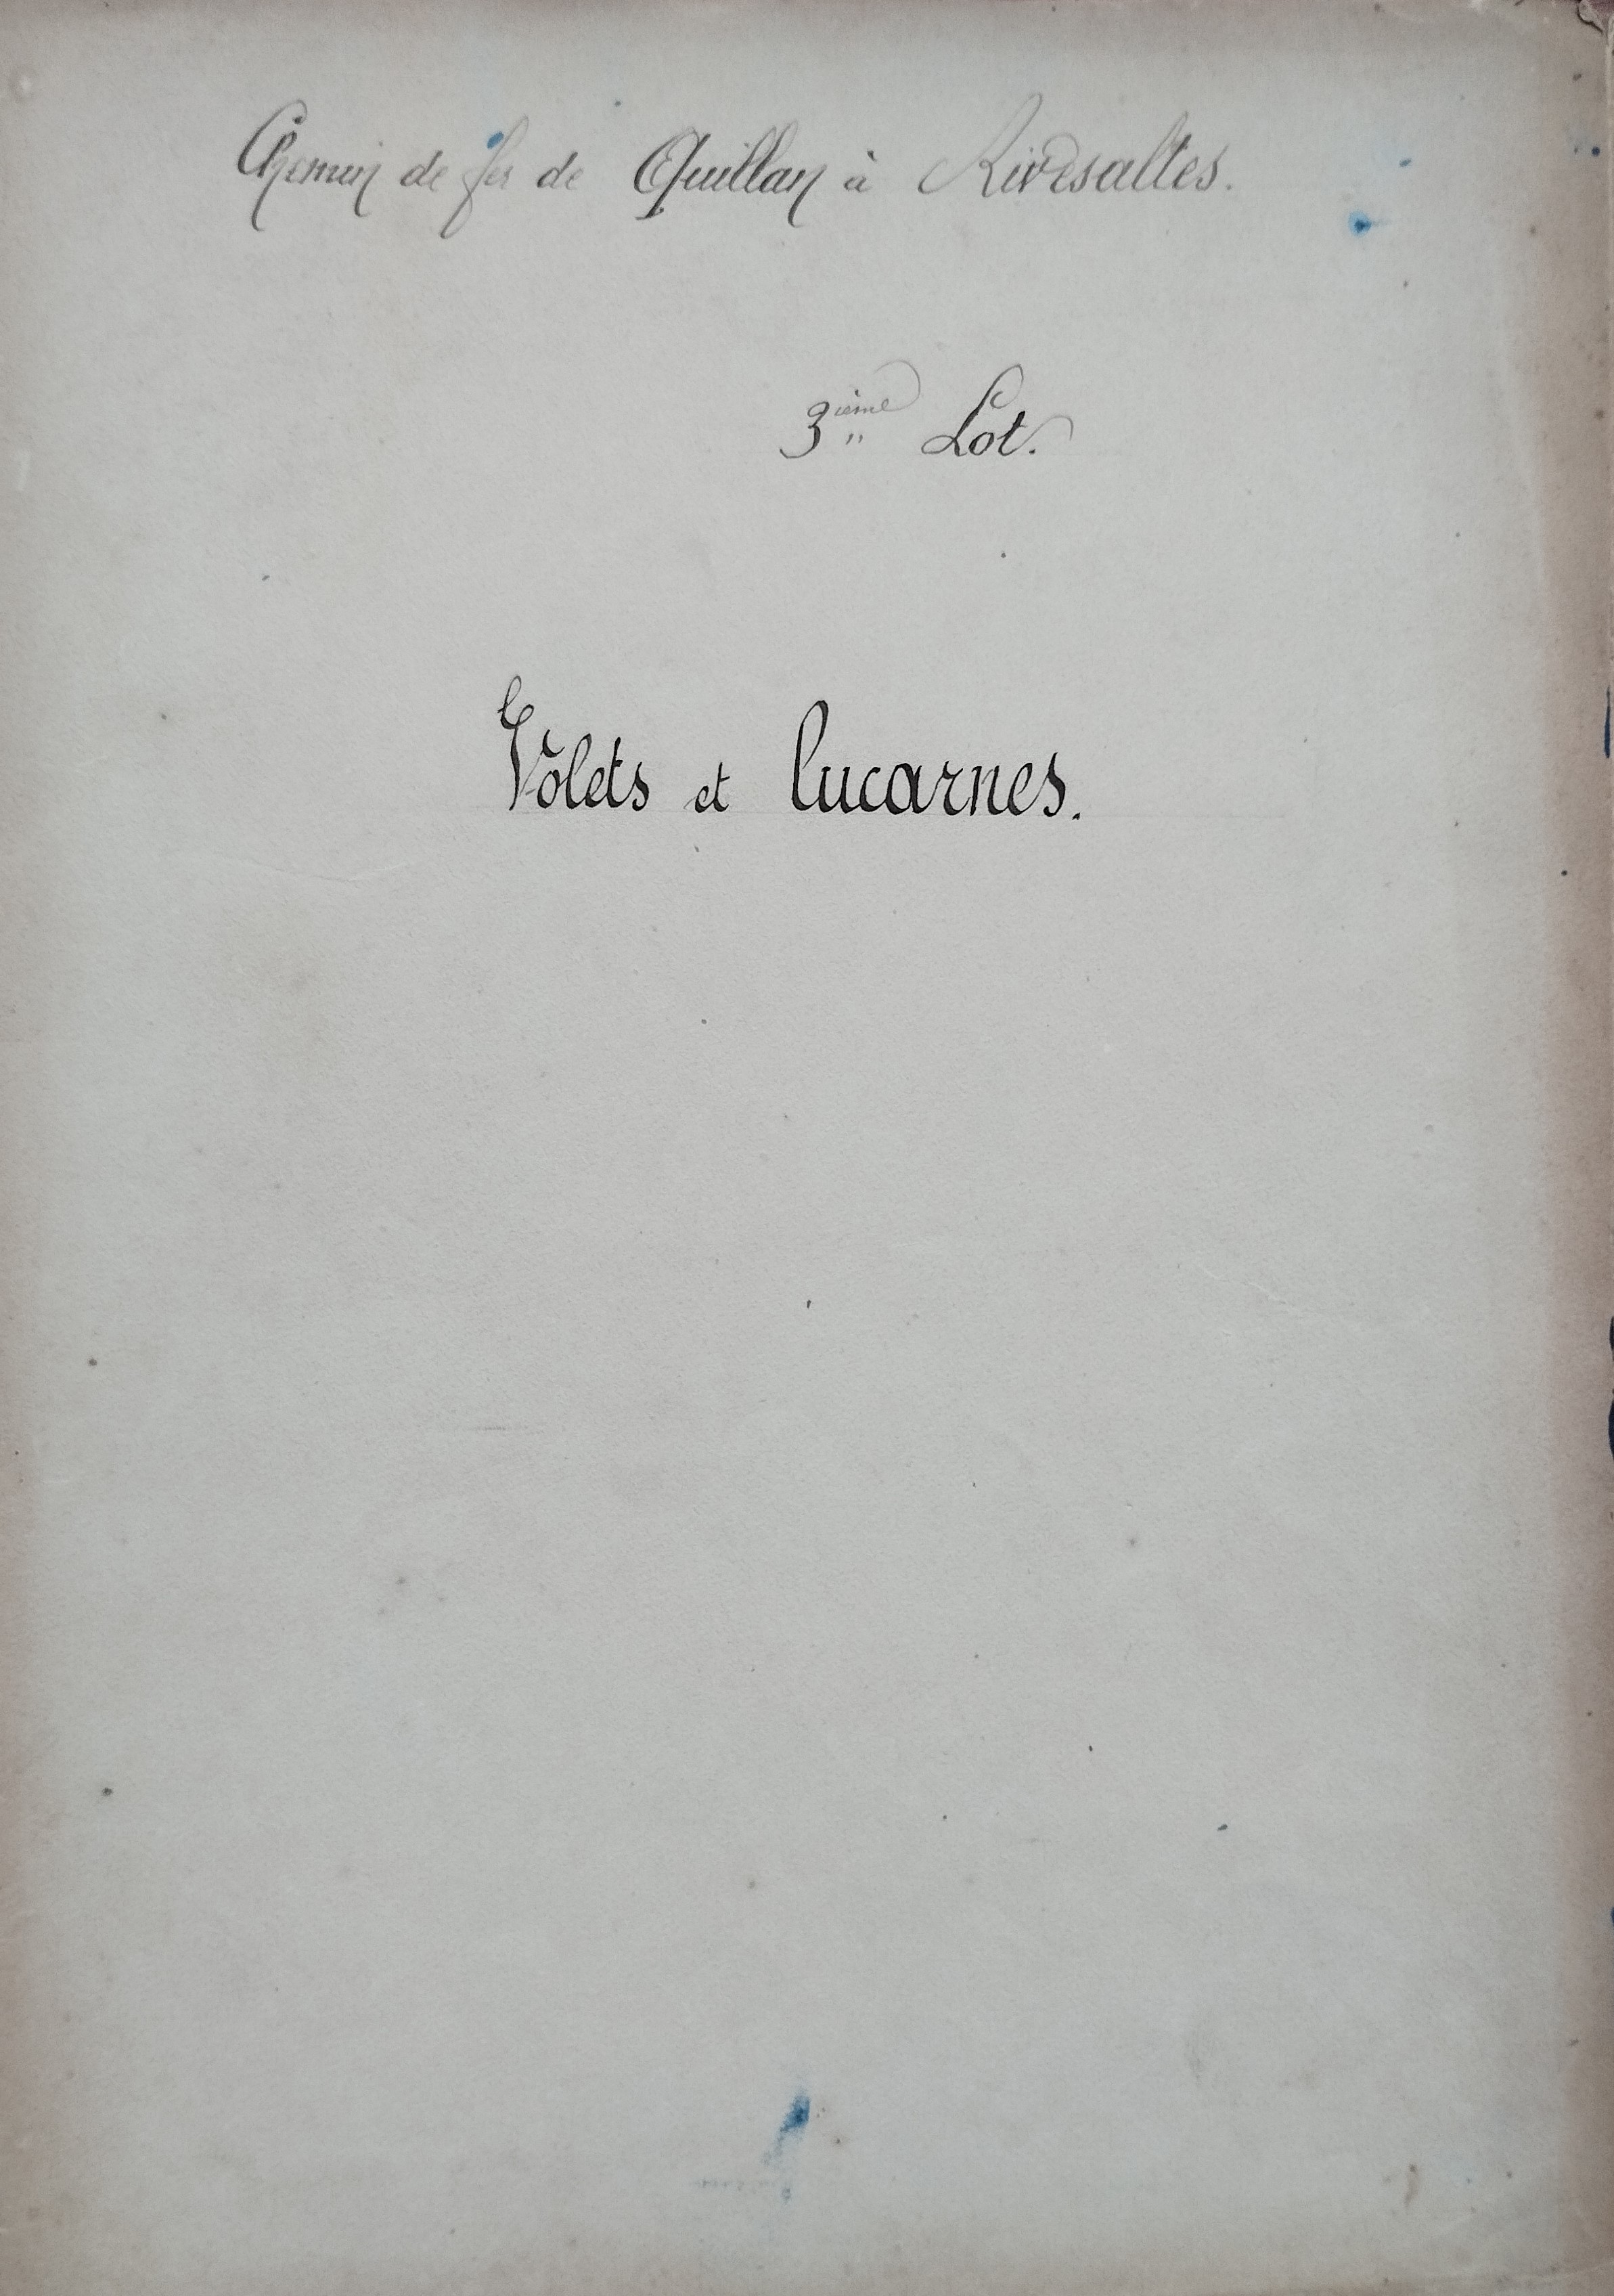 Chemin de fer de Quillan à Rivesaltes.
3ième Lot.
Volets et lucarnes.